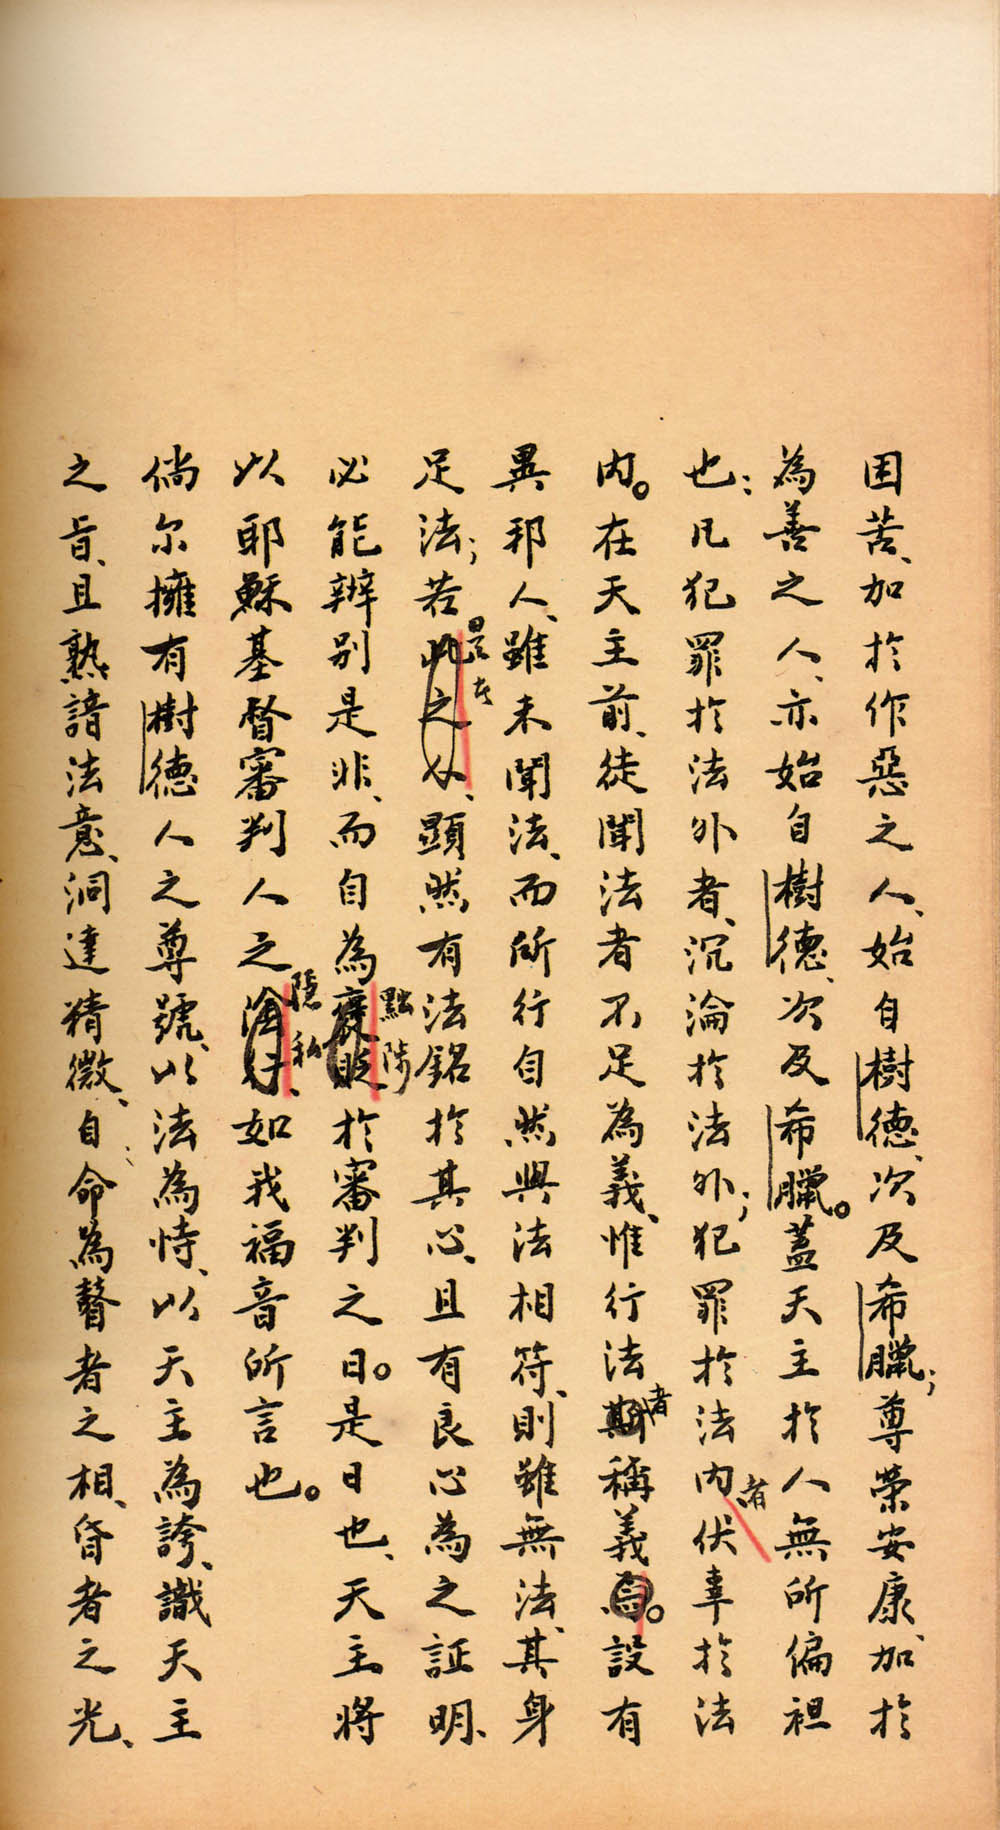 困苦、加於作惡之人、始自樹德、次及希臘；尊榮安康、加於
為善之人、亦始自樹德、次及希臘。蓋天主於人無所偏袒
也：凡犯罪於法外者、沉淪於法外；犯罪於法內者伏辜於法
內。在天主前、徒聞法者不足為義、惟行法者稱義。設有
異邦人、雖未聞法、而所行自然與法相符、則雖無法、其身
足法；若是者、顯然有法銘於其心、且有良心為之証明、
必能辨別是非、而自為黜陟於審判之日。是日也、天主將
以耶穌基督審判人之隱私、如我福音所言也。
倘尔擁有樹德人之尊號、以法為恃、以天主為誇、識天主
之旨、且熟諳法意、洞達精微、自命為瞽者之相、昏者之光、